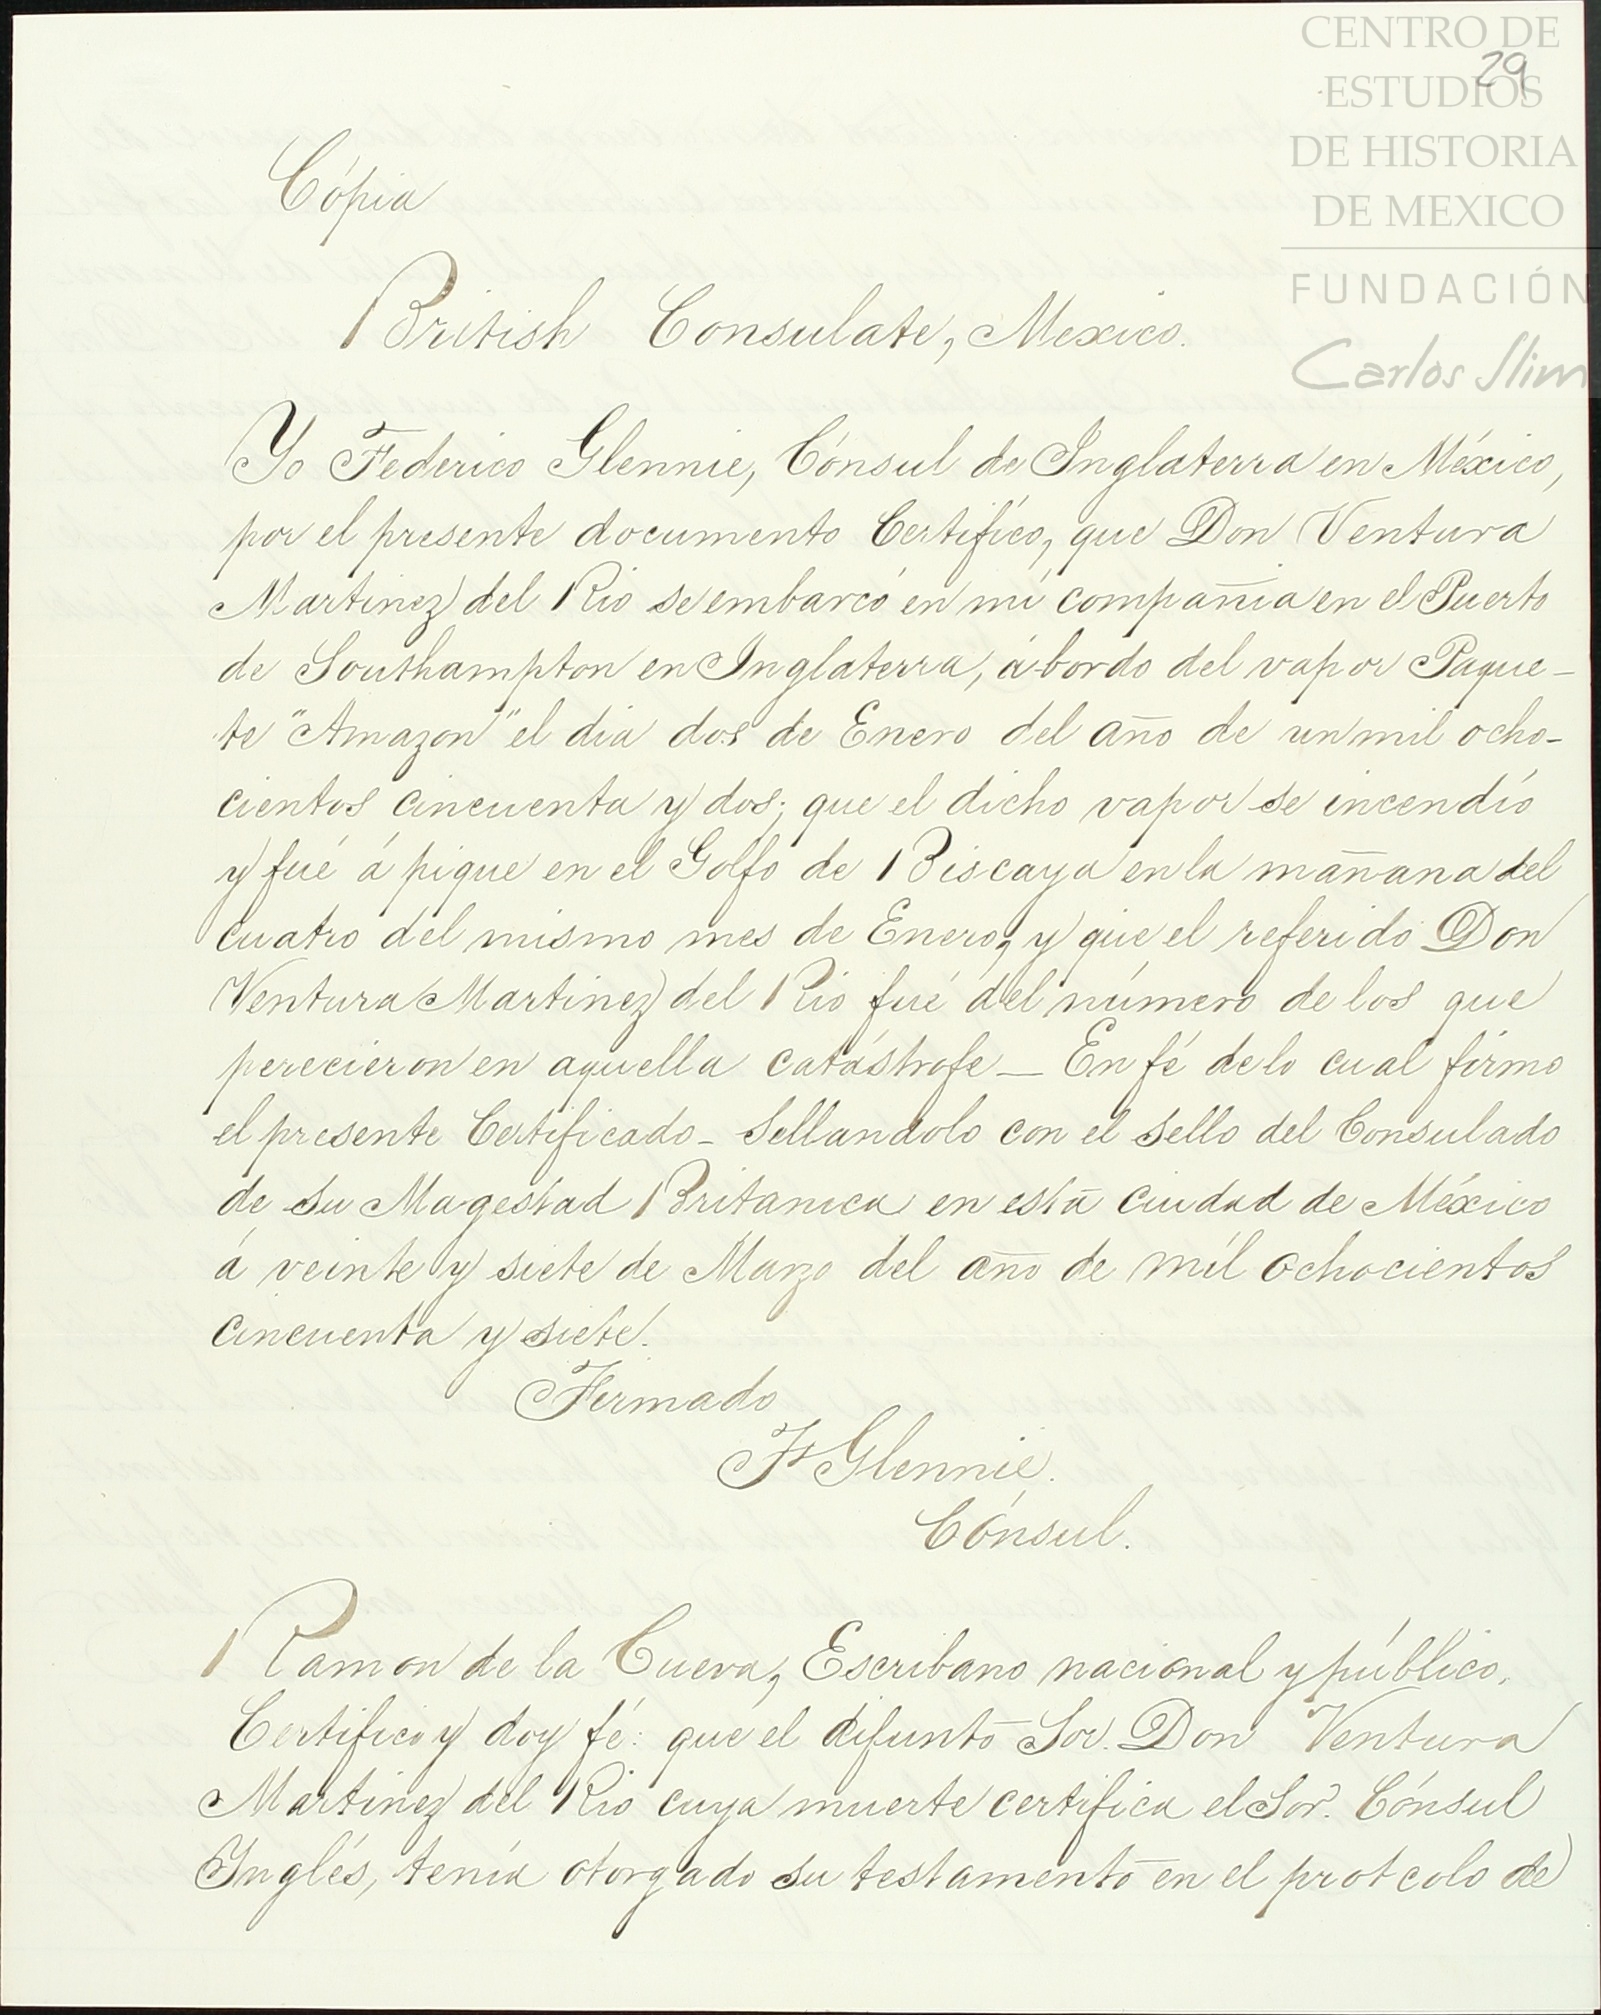 CENTRO DE
ESTUDIOS
DE HISTORIA
DE MEXICO
FUNDACIÓN
Carlos Slim
29
Cópia
British Consulate, Mexico.
Yo Federico Glennie, Cónsul de Inglaterra en México,
por el presente documento Certifíco, que Don Ventura
Martinez del Rio se embarcó en mi compañia en el Puerto
de Southampton en Inglaterra, á bordo del vapor Paque-
te "Amazon" el dia dos de Enero del año de un mil ocho-
cientos cincuenta y dos; que el dicho vapor se incendío
y fué á pique en el Golfo de Biscaya en la mañana del
cuatro del mismo mes de Enero, y que el referido Don
Ventura Martinez del Rio fué del número de los que
perecieron en aquella catástrofe — En fé de lo cual firmo
el presente Certificado - Sellandolo con el Sello del Consulado
de Su Magestad Britanica en esta Ciudad de México
á veinte y siete de Marzo del año de mil ochocientos
cincuenta y siete.
Firmado
F Glennie.
Cónsul.
Ramon de la Cueva, Escribano nacional y público,
Certifico y doy fé: que el difunto Sor. Don Ventura
Martinez del Rio cuya muerte certifica el Sor. Cónsul
Inglés, tenía otorgado su testamento en el protcolo de